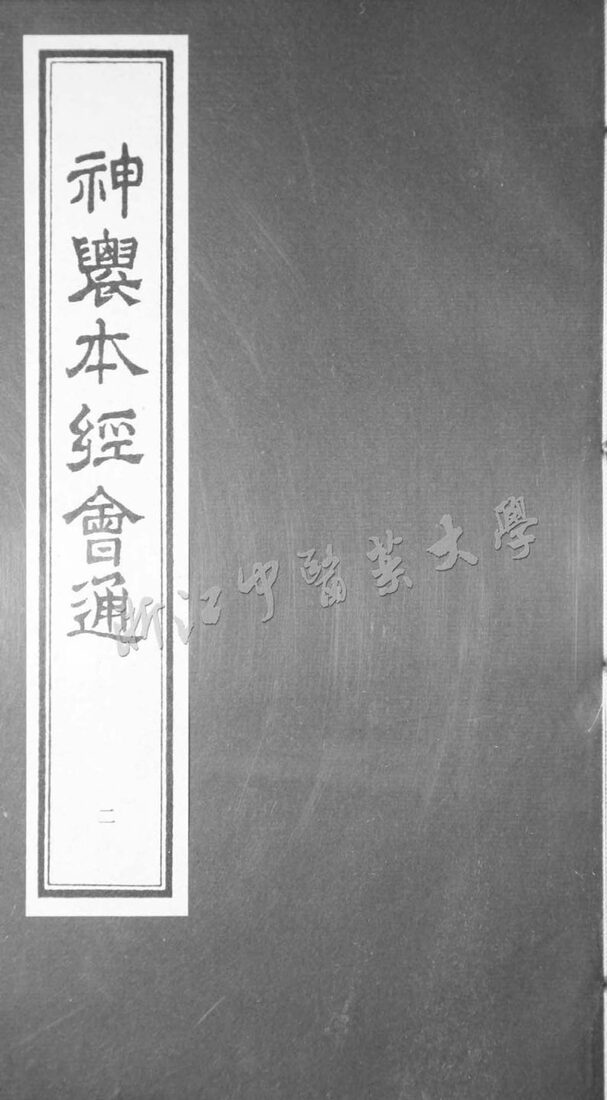 神農本經會通
二
浙江中醫藥大學